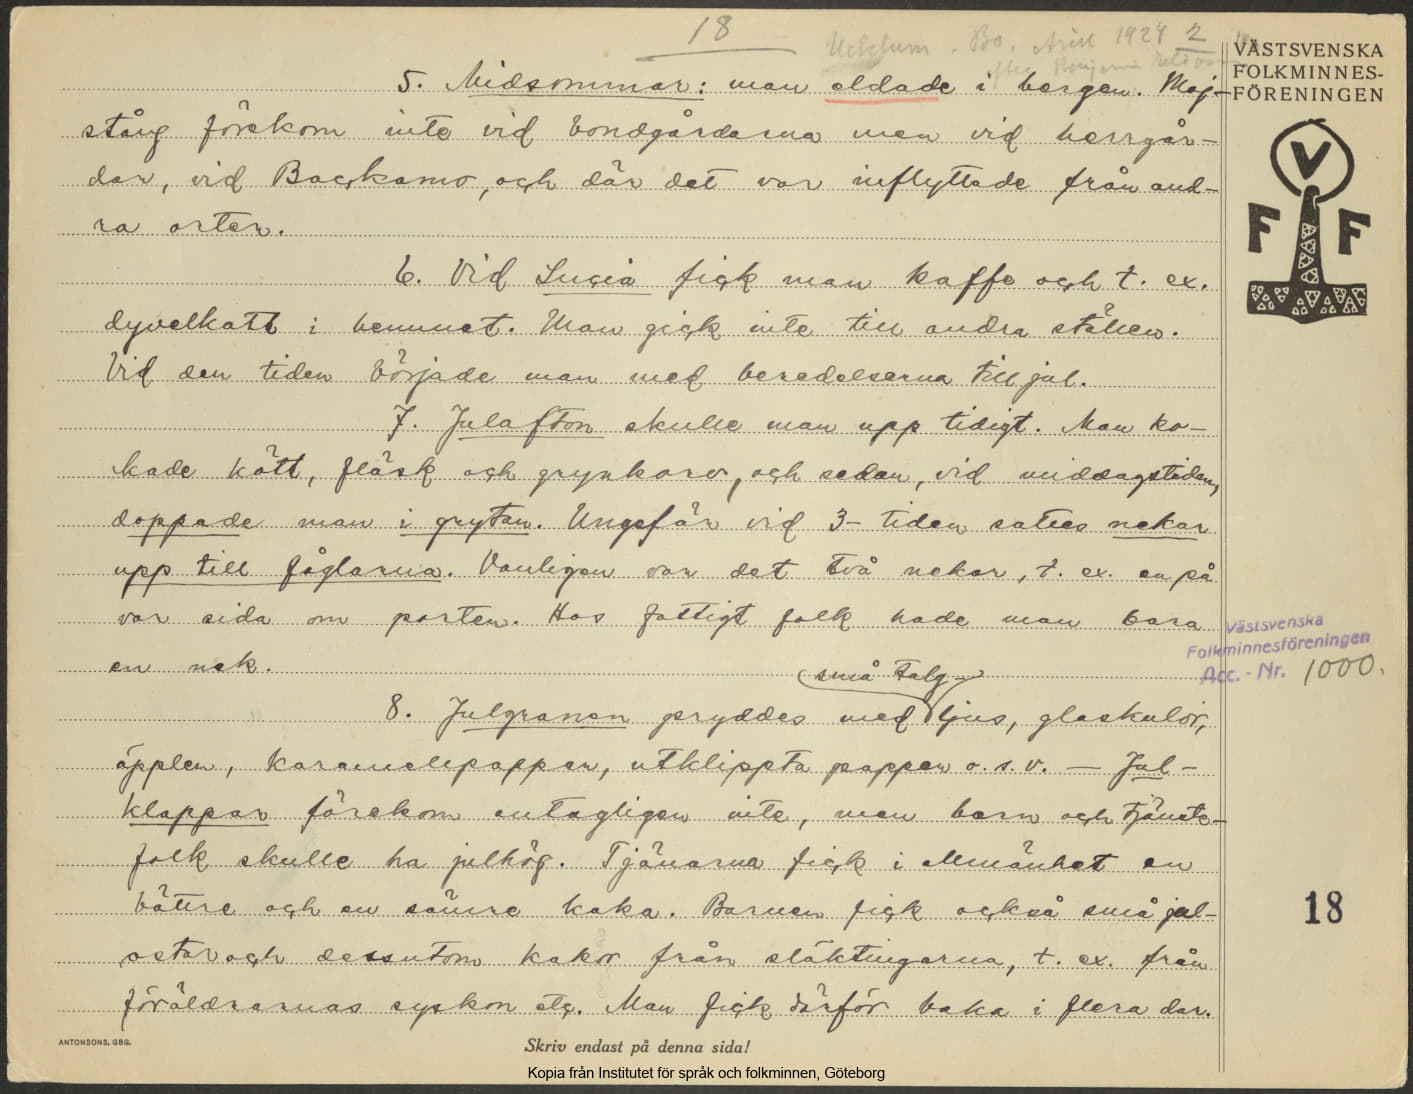 18
Ucklum. Bo. April 1924 2
VÄSTSVENSKA
FOLKMINNES-
FÖRENINGEN
V
F F
5. Midsommar: man eldade i bergen. Maj-
stång förekom inte vid bondgårdarna men vid herrgår-
dar, vid Backamo, och där det var inflyttade från and-
ra orter.
6. Vid Lucia fick man kaffe och t. ex.
dyvelkatt i hemmet. Man gick inte till andra ställen.
Vid den tiden började man med beredelserna till jul.
7. Julafton skulle man upp tidigt. Man ko-
kade kött, fläsk och grynkorv, och sedan, vid middagstiden,
doppade man i grytan. Ungefär vid 3-tiden sattes nekar
upp till fåglarna. Vanligen var det två nekar, t. ex. en på
var sida om porten. Hos fattigt folk hade man bara
en nek.
Västsvenska
Folkminnesföreningen
Acc.-Nr. 1000.
små talg-
8. Julgranen pryddes med ljus, glaskulor,
äpplen, karamellpapper, utklippta papper o.s.v. — Jul-
klappar förekom antagligen inte, men barn och tjänste-
folk skulle ha julhög. Tjänarna fick i allmänhet en
bättre och en sämre kaka. Barnen fick också små jul-
ostar och dessutom kakor från släktingarna, t. ex. från
föräldrarnas syskon etc. Man fick därför baka i flera dar.
18
ANTONSONS, GBG.
Skriv endast på denna sida!
Kopia från Institutet för språk och folkminnen, Göteborg